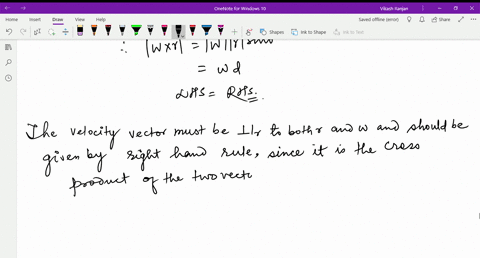 OneNote for Windows 10
Vikash Ranjan
Home Insert Draw View Help
Saved offline (error)
Shapes Ink to Shape
∴ |w×r| = |w||r| sinθ
= wd
LHS = RHS.
The velocity vector must be ⊥lr to both r and w and should be
given by right hand rule, since it is the cross
product of the two vecto